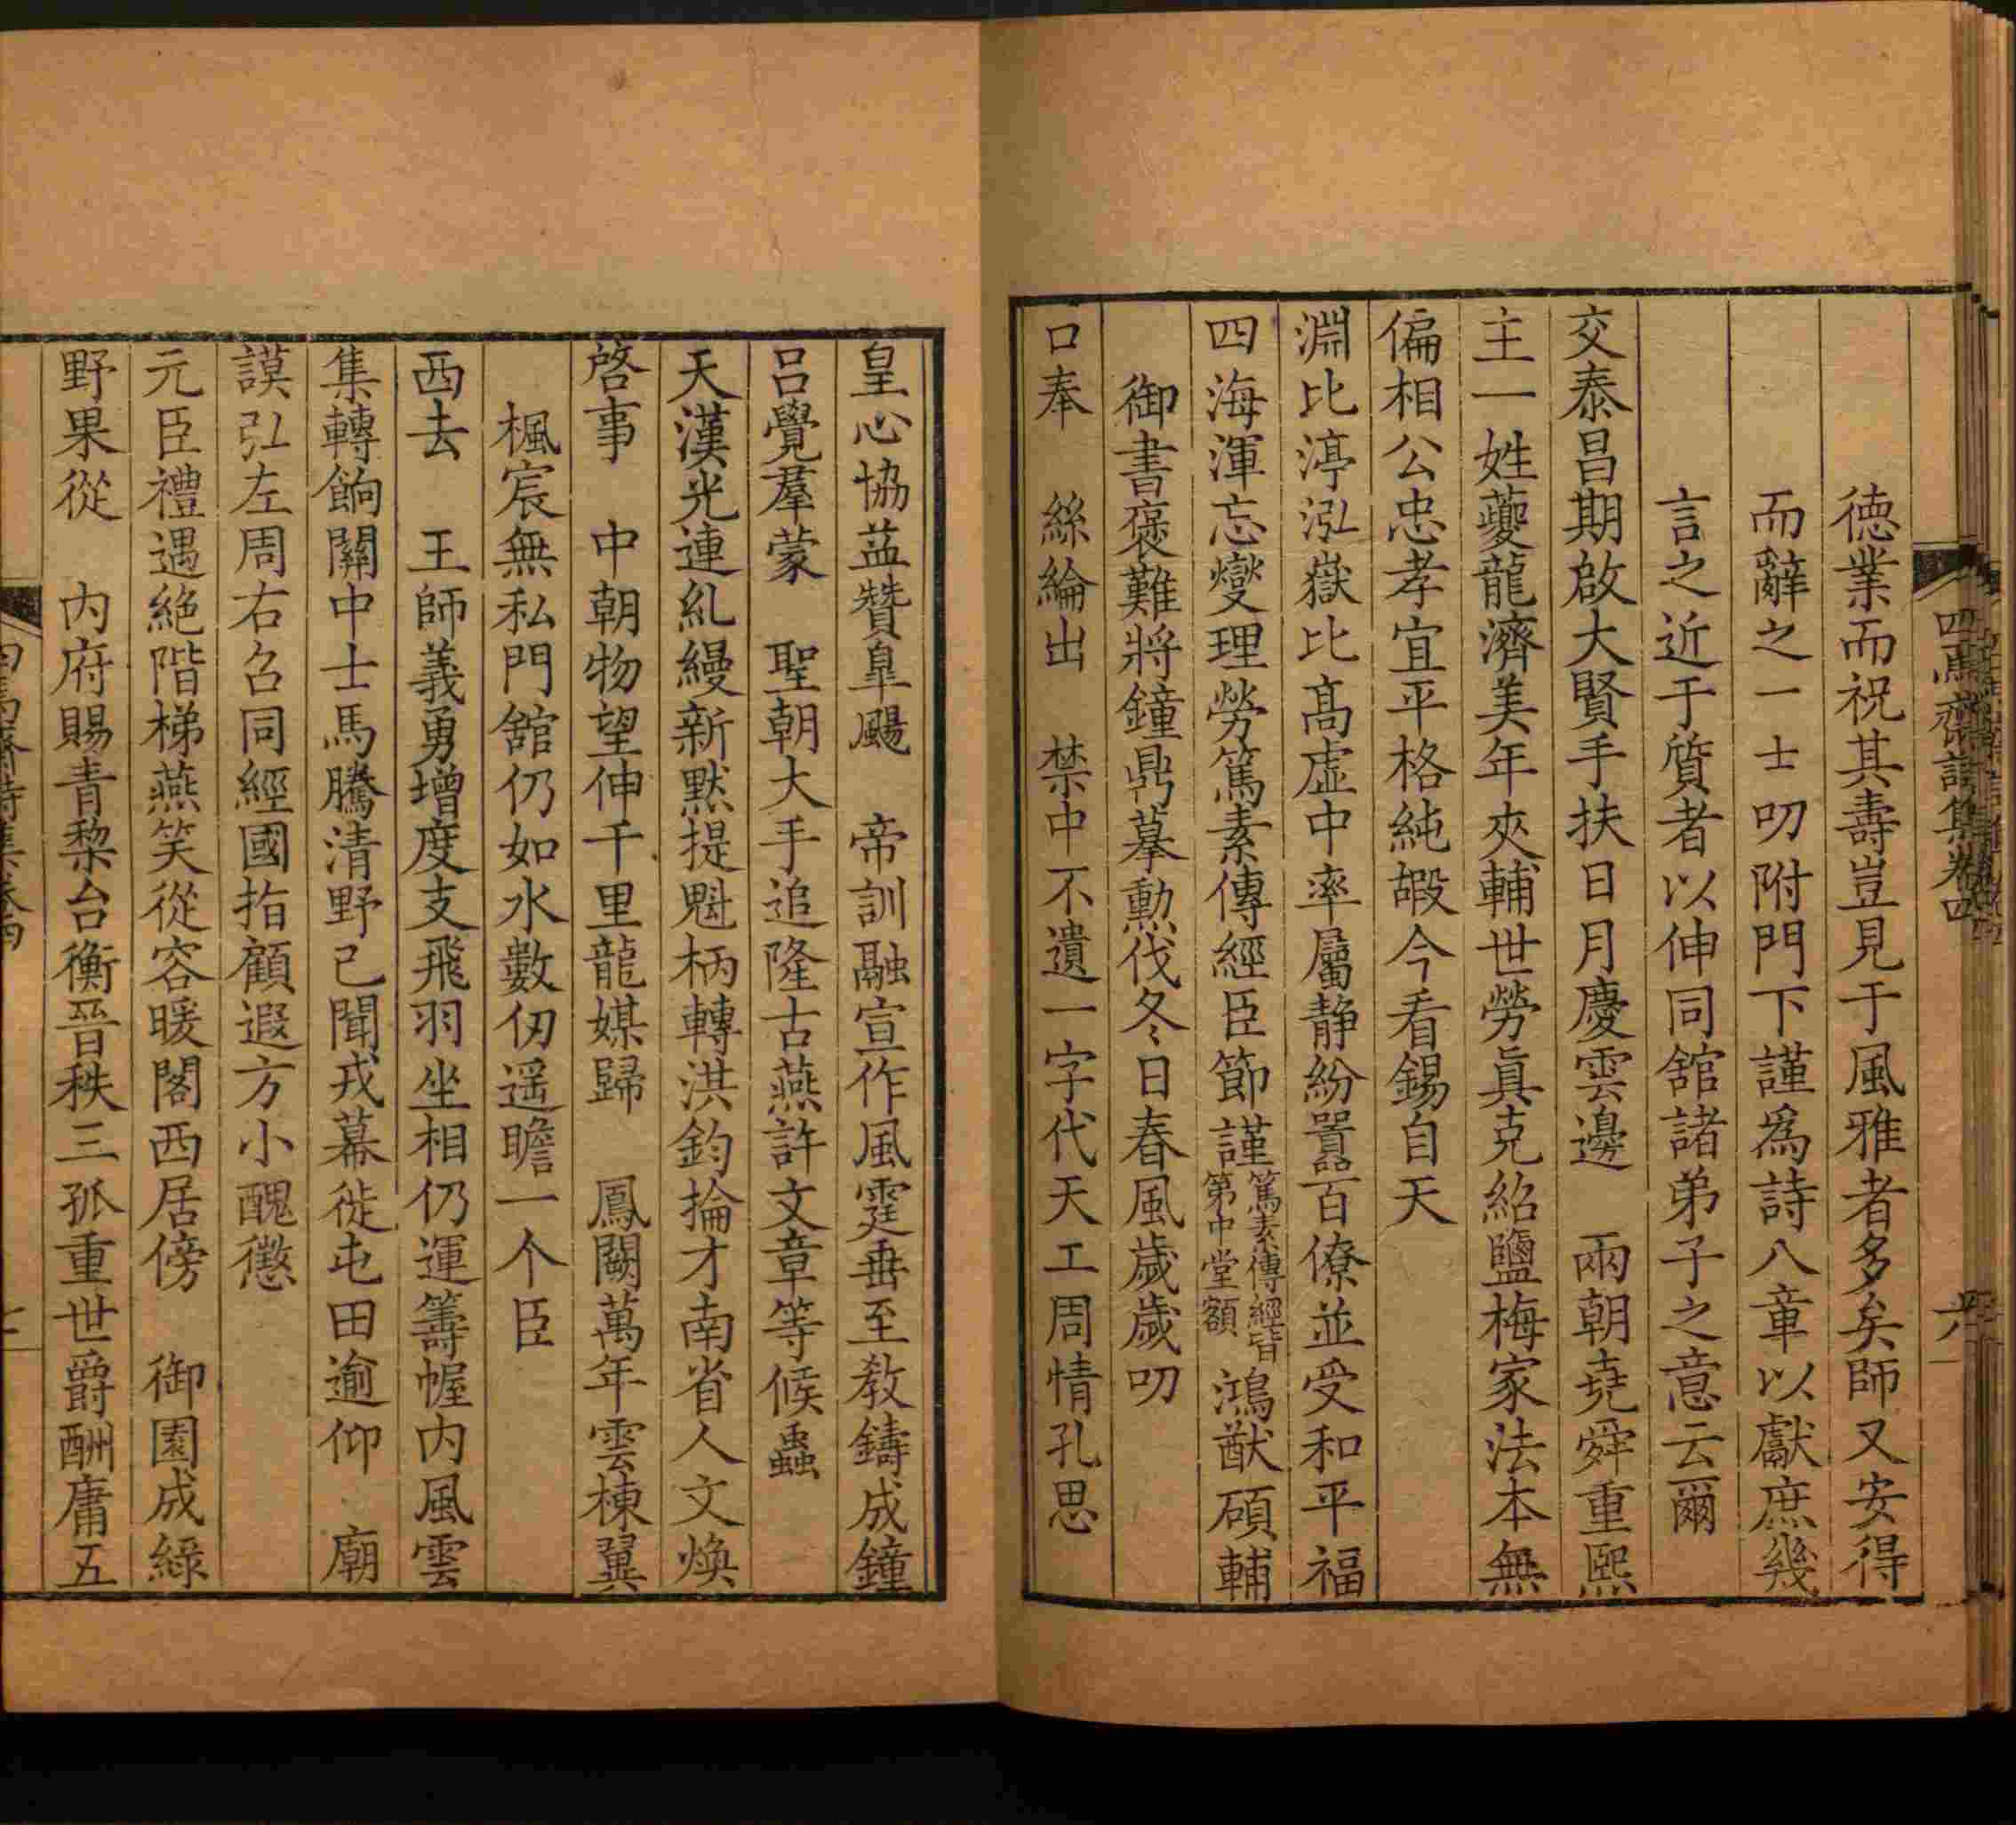 四焉齋詩集卷四
六
德業而祝其壽豈見于風雅者多矣師又安得
而辭之一士叨附門下謹爲詩八章以獻庶幾
言之近于質者以伸同館諸弟子之意云爾
交泰昌期啟大賢手扶日月慶雲邊　兩朝堯舜重熙
主一姓夔龍濟美年夾輔世勞眞克紹鹽梅家法本無
偏相公忠孝宜平格純嘏今看錫自天
淵比渟泓嶽比髙虛中率屬静紛囂百僚並受和平福
四海渾忘燮理勞篤素傳經臣節謹篤素傳經皆第中堂額鴻猷碩輔
御書褒難將鐘鼎摹勲伐冬日春風歲歲叨
口奉　絲綸出　禁中不遺一字代天工周情孔思
皇心協益贊臯颺　帝訓融宣作風霆垂至教鑄成鐘
呂覺羣蒙　聖朝大手追隆古燕許文章等候蟲
天漢光連糺縵新默提魁柄轉洪鈞掄才南省人文煥
啓事　中朝物望伸千里龍媒歸　鳳闕萬年雲棟翼
楓宸無私門館仍如水數仞遥瞻一个臣
西去　王師義勇增度支飛羽坐相仍運籌幄内風雲
集轉餉關中士馬騰清野已聞戎幕徙屯田逾仰　廟
謨弘左周右召同經國指顧遐方小醜懲
元臣禮遇絶階梯燕笑從容暖閣西居傍　御園成綠
野果從　内府賜青黎台衡晉秩三孤重世爵酬庸五
四焉齋詩集卷四
七